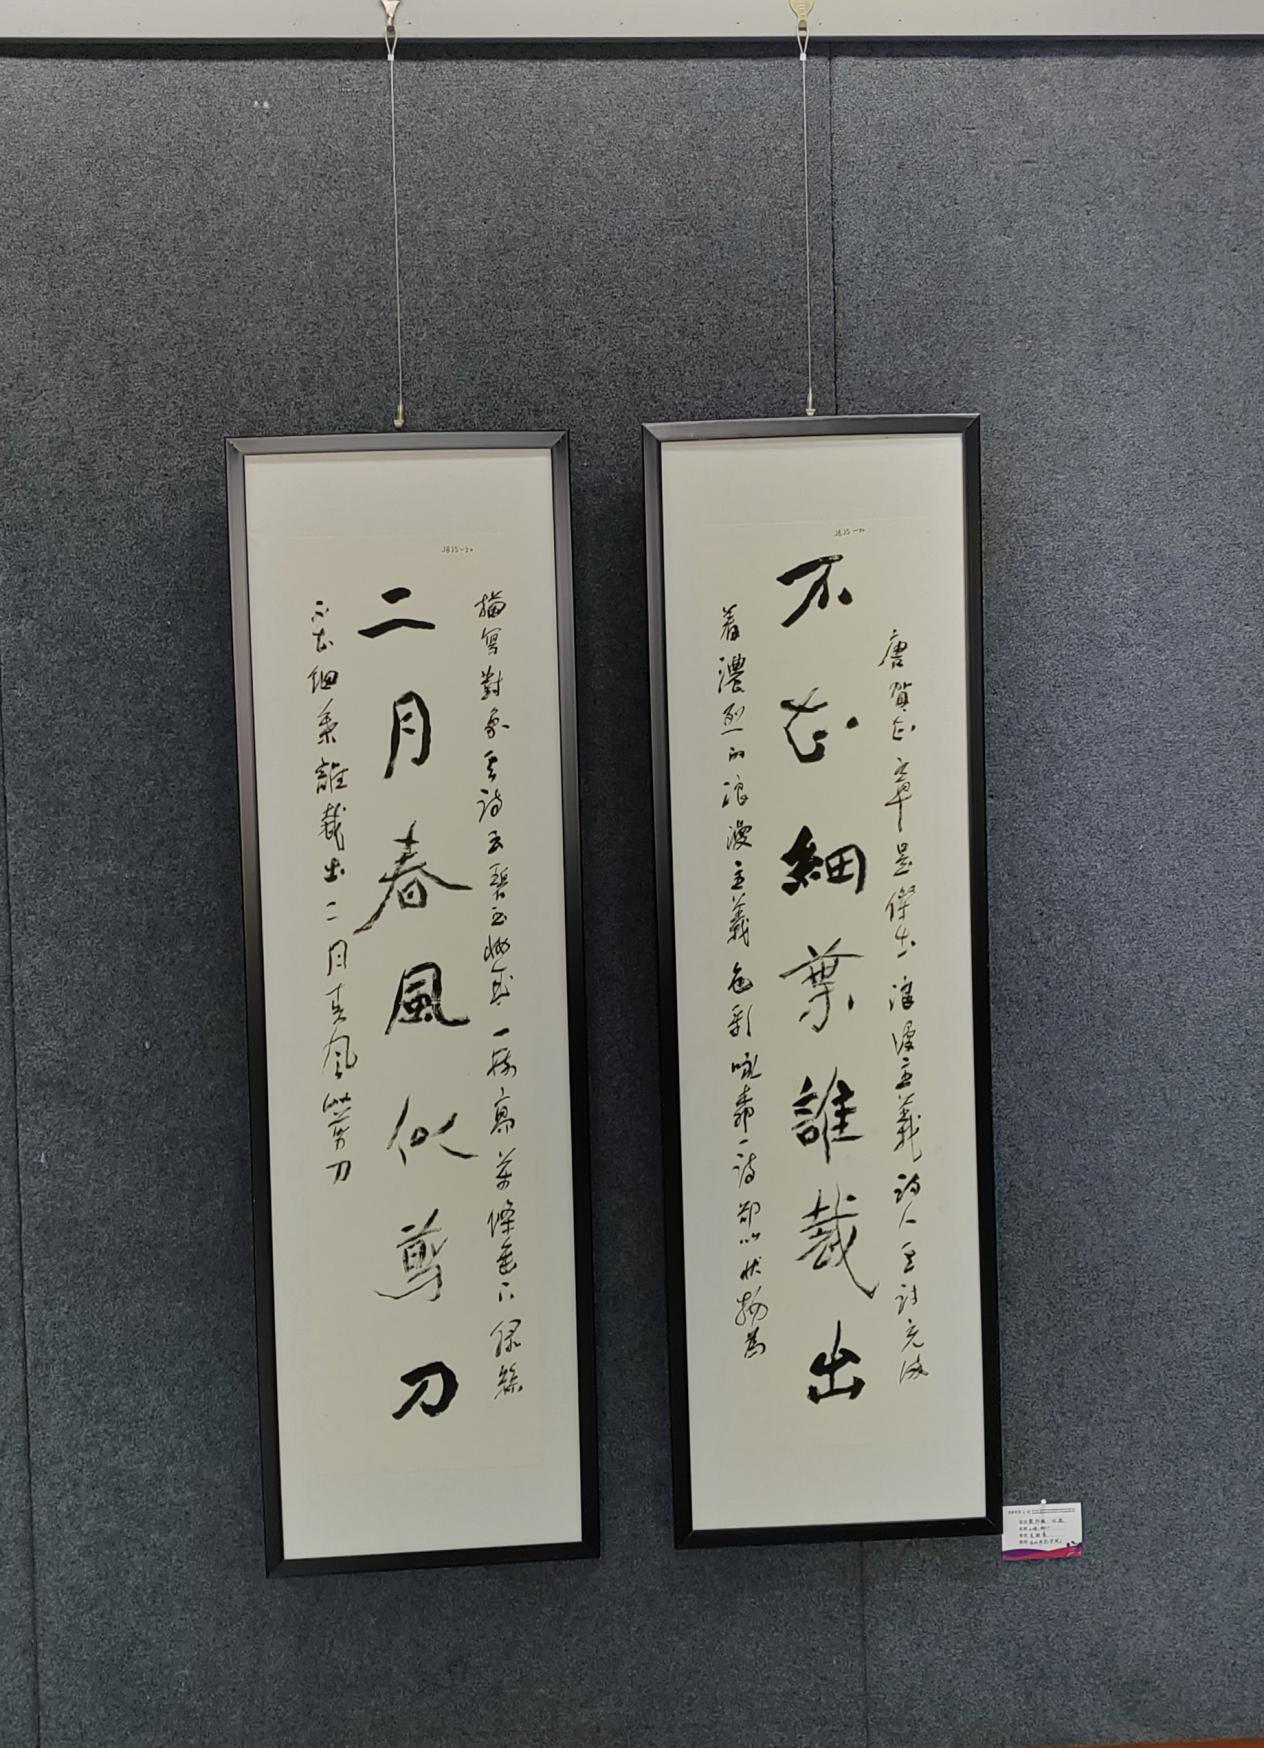 唐賀知章是傑出浪漫主義詩人其詩充滿
不知細葉誰裁出
着濃烈的浪漫主義色彩咏一詩以狀物為
描寫對象其詩云碧玉妝成一樹高萬條垂下綠絲
二月春風似剪刀
不知細葉誰裁出二月春風似剪刀